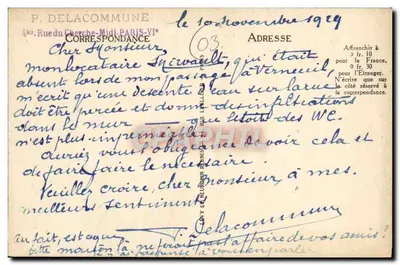 P. DELACOMMUNE
Rue du Cherche-Midi, PARIS-VIe
le 10 Novembre 1929
CORRESPONDANCE
ADRESSE
03
Cher Monsieur,
mon locataire qui était
absent lors de mon passage à Verneuil,
m'écrit qu'une descente d'eau sur la rue
doit être percée et donne des infiltrations
dans le mur que le toit des WC.
n'est plus imperméable.
Auriez vous l'obligeance de voir cela et
de faire faire le nécessaire.
Veuillez croire, cher Monsieur, à mes
meilleurs sentiments
Delacommune
au fait, est ce que
maison à ne ferait pas l'affaire de vos amis ?
Affranchir à
0 fr. 10
pour la France,
0 fr. 30
pour l'Etranger.
N'écrire que sur
le côté réservé à
la correspondance.